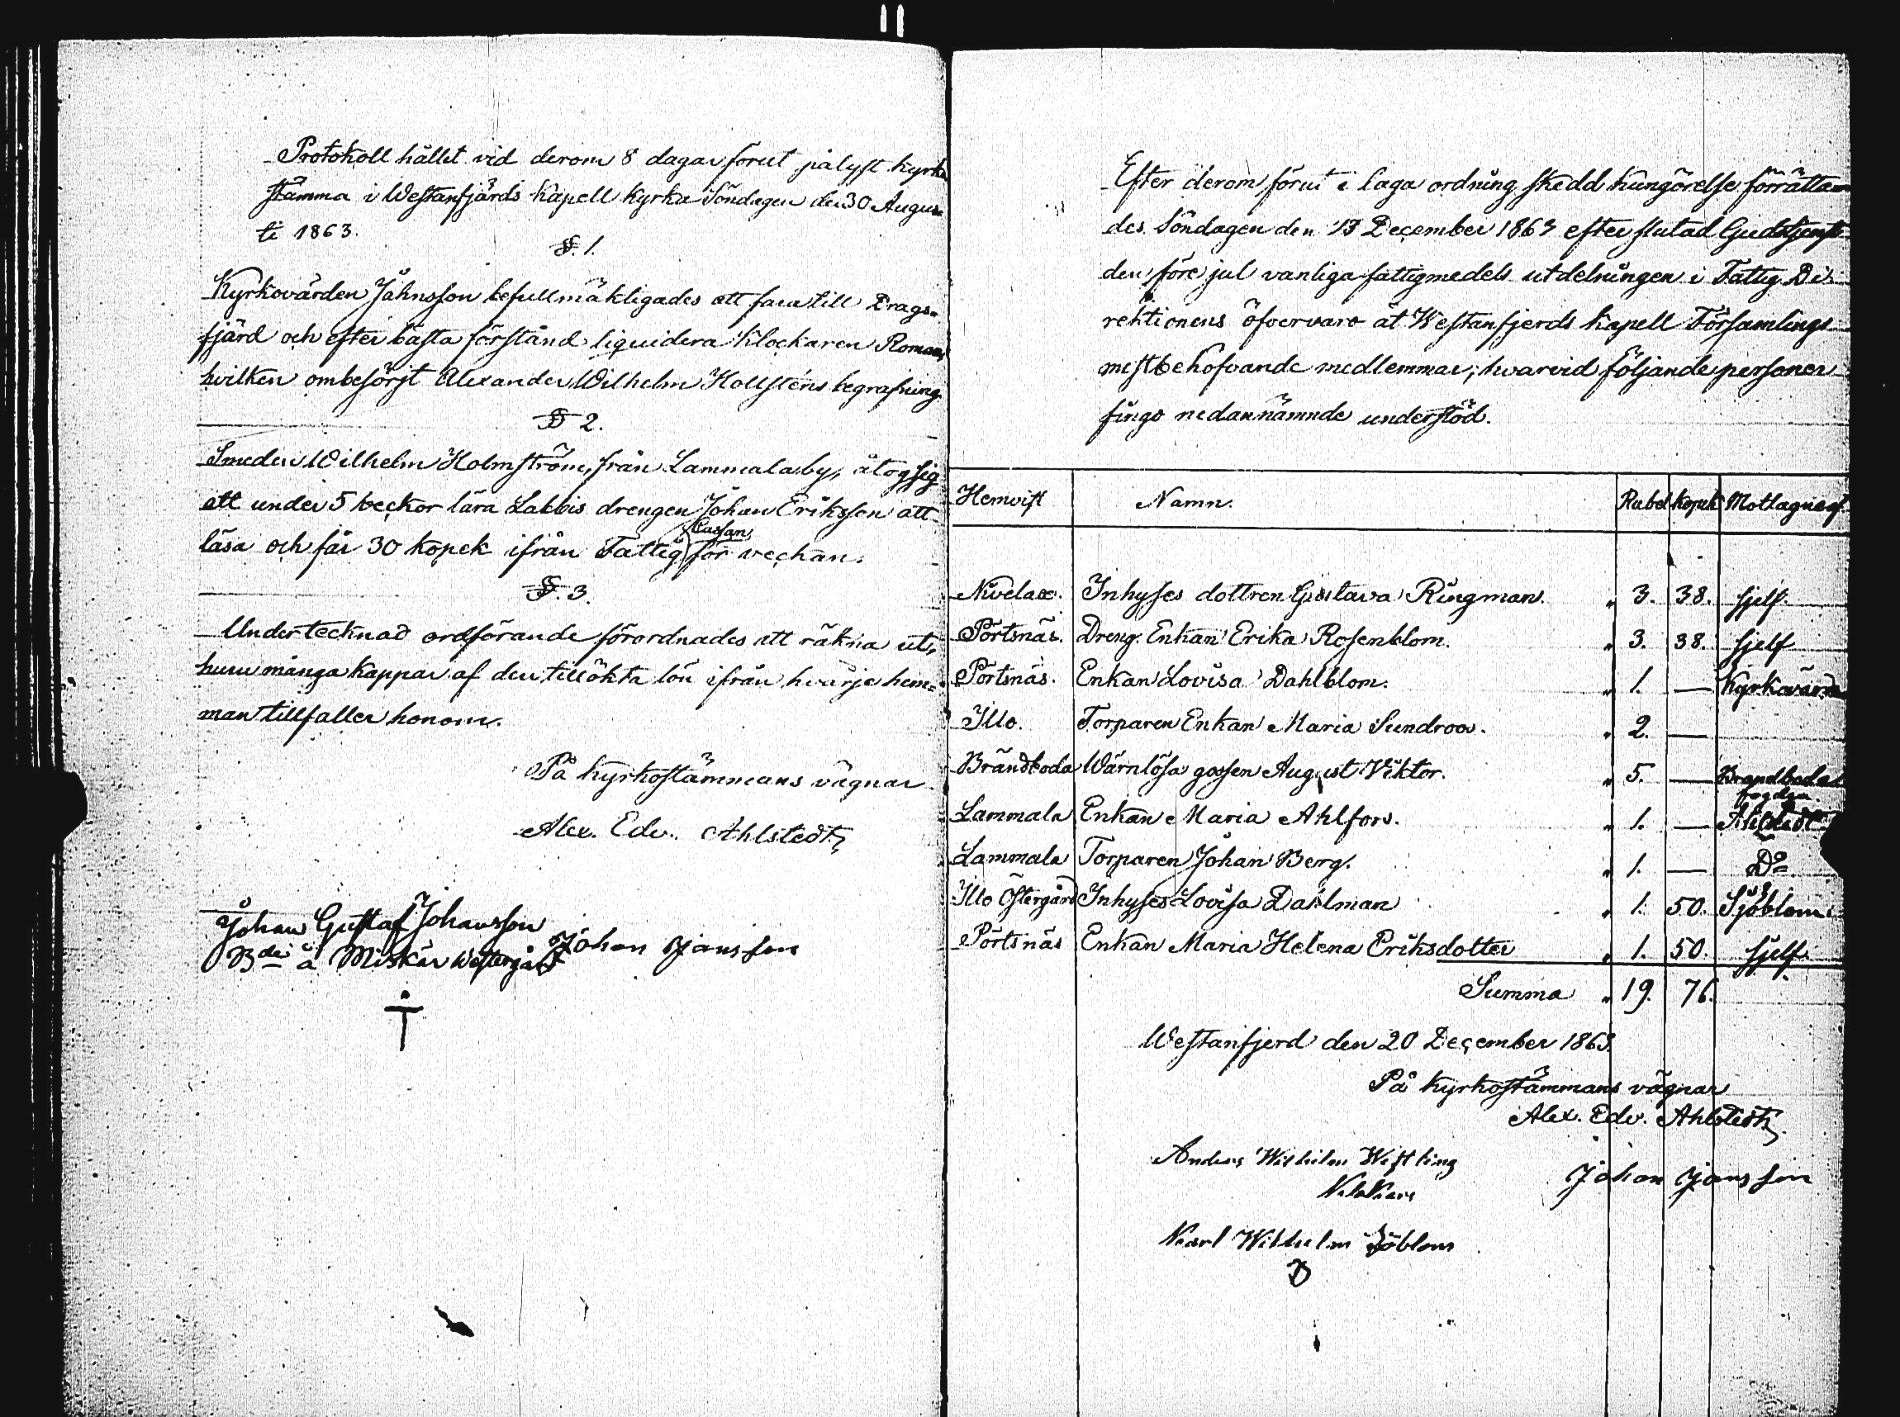 Protokoll hållet vid derom 8 dagar förut pålyst kyrko
stämma i Westanfjärds kapell kyrka Söndagen den 30 Augus=
ti 1863.
§. 1.
Kyrkovärden Johnsson befullmäktigades att fara till Drags=
fjärd och efter bästa förstånd liquidera Klockaren
hvilken ombesörjt Alexander Wilhelm Hollsténs begrafning
§ 2.
Smeden Wilhelm Holmström, från Lammala by, åtog sig
att under 5 veckor lära Lakbis drengen Johan Eriksson att
Cassan
läsa och får 30 kopek ifrån Fattig för veckan.
§. 3.
Undertecknad ordförande förordnades att räkna ut,
huru många kappar af den tillökta lön ifrån hvarje hem=
man tillfaller honom.
På kyrkostämmans vägnar
Alex. Edv. Ahlstedt
Johan Gustaf Johansson
Bde å Miskär Westergård
Johan Jansson
Efter derom förut i laga ordning skedd kungörelse förrätta
des Söndagen den 13 December 1863 efter slutad Gudstjenst
den före jul vanliga fattigmedels utdelningen i Fattig Di=
rektionens öfvervaro åt Westanfjerds kapell Församlings
mest behöfvande medlemmar, hvarvid följande personer
fingo nedannämnde understöd.
Hemvist Namn. Rubel kopek Mottagne af
Nivelax. Inhyses dottren Gustava Ringman. " 3. 38. sjelf.
Pörtsnäs. Dreng. Enkan Erika Rosenblom. " 3. 38. sjelf
Pörtsnäs. Enkan Lovisa Dahlblom. " 1. — Kyrkovärden
Illo. Torparen Enkan Maria Sundroos. " 2. —
Brändboda Wärnlösa gossen August Viktor. " 5. — Brandboda
fogden
Lammala Enkan Maria Ahlfors. " 1. — Ahlstedt
Lammala Torparen Johan Berg. " 1. — Do
Illo Östergård Inhyses Lovisa Dahlman " 1. 50. Sjöblom
Pörtsnäs Enkan Maria Helena Eriksdotter " 1. 50. sjelf.
Summa " 19. 76.
Westanfjerd den 20 December 1863.
På kyrkostämmans vägnar
Alex. Edv. Ahlstedt
Anders Wilhelm Westling
Johan Jansson
Karl Wilhelm Sjöblom